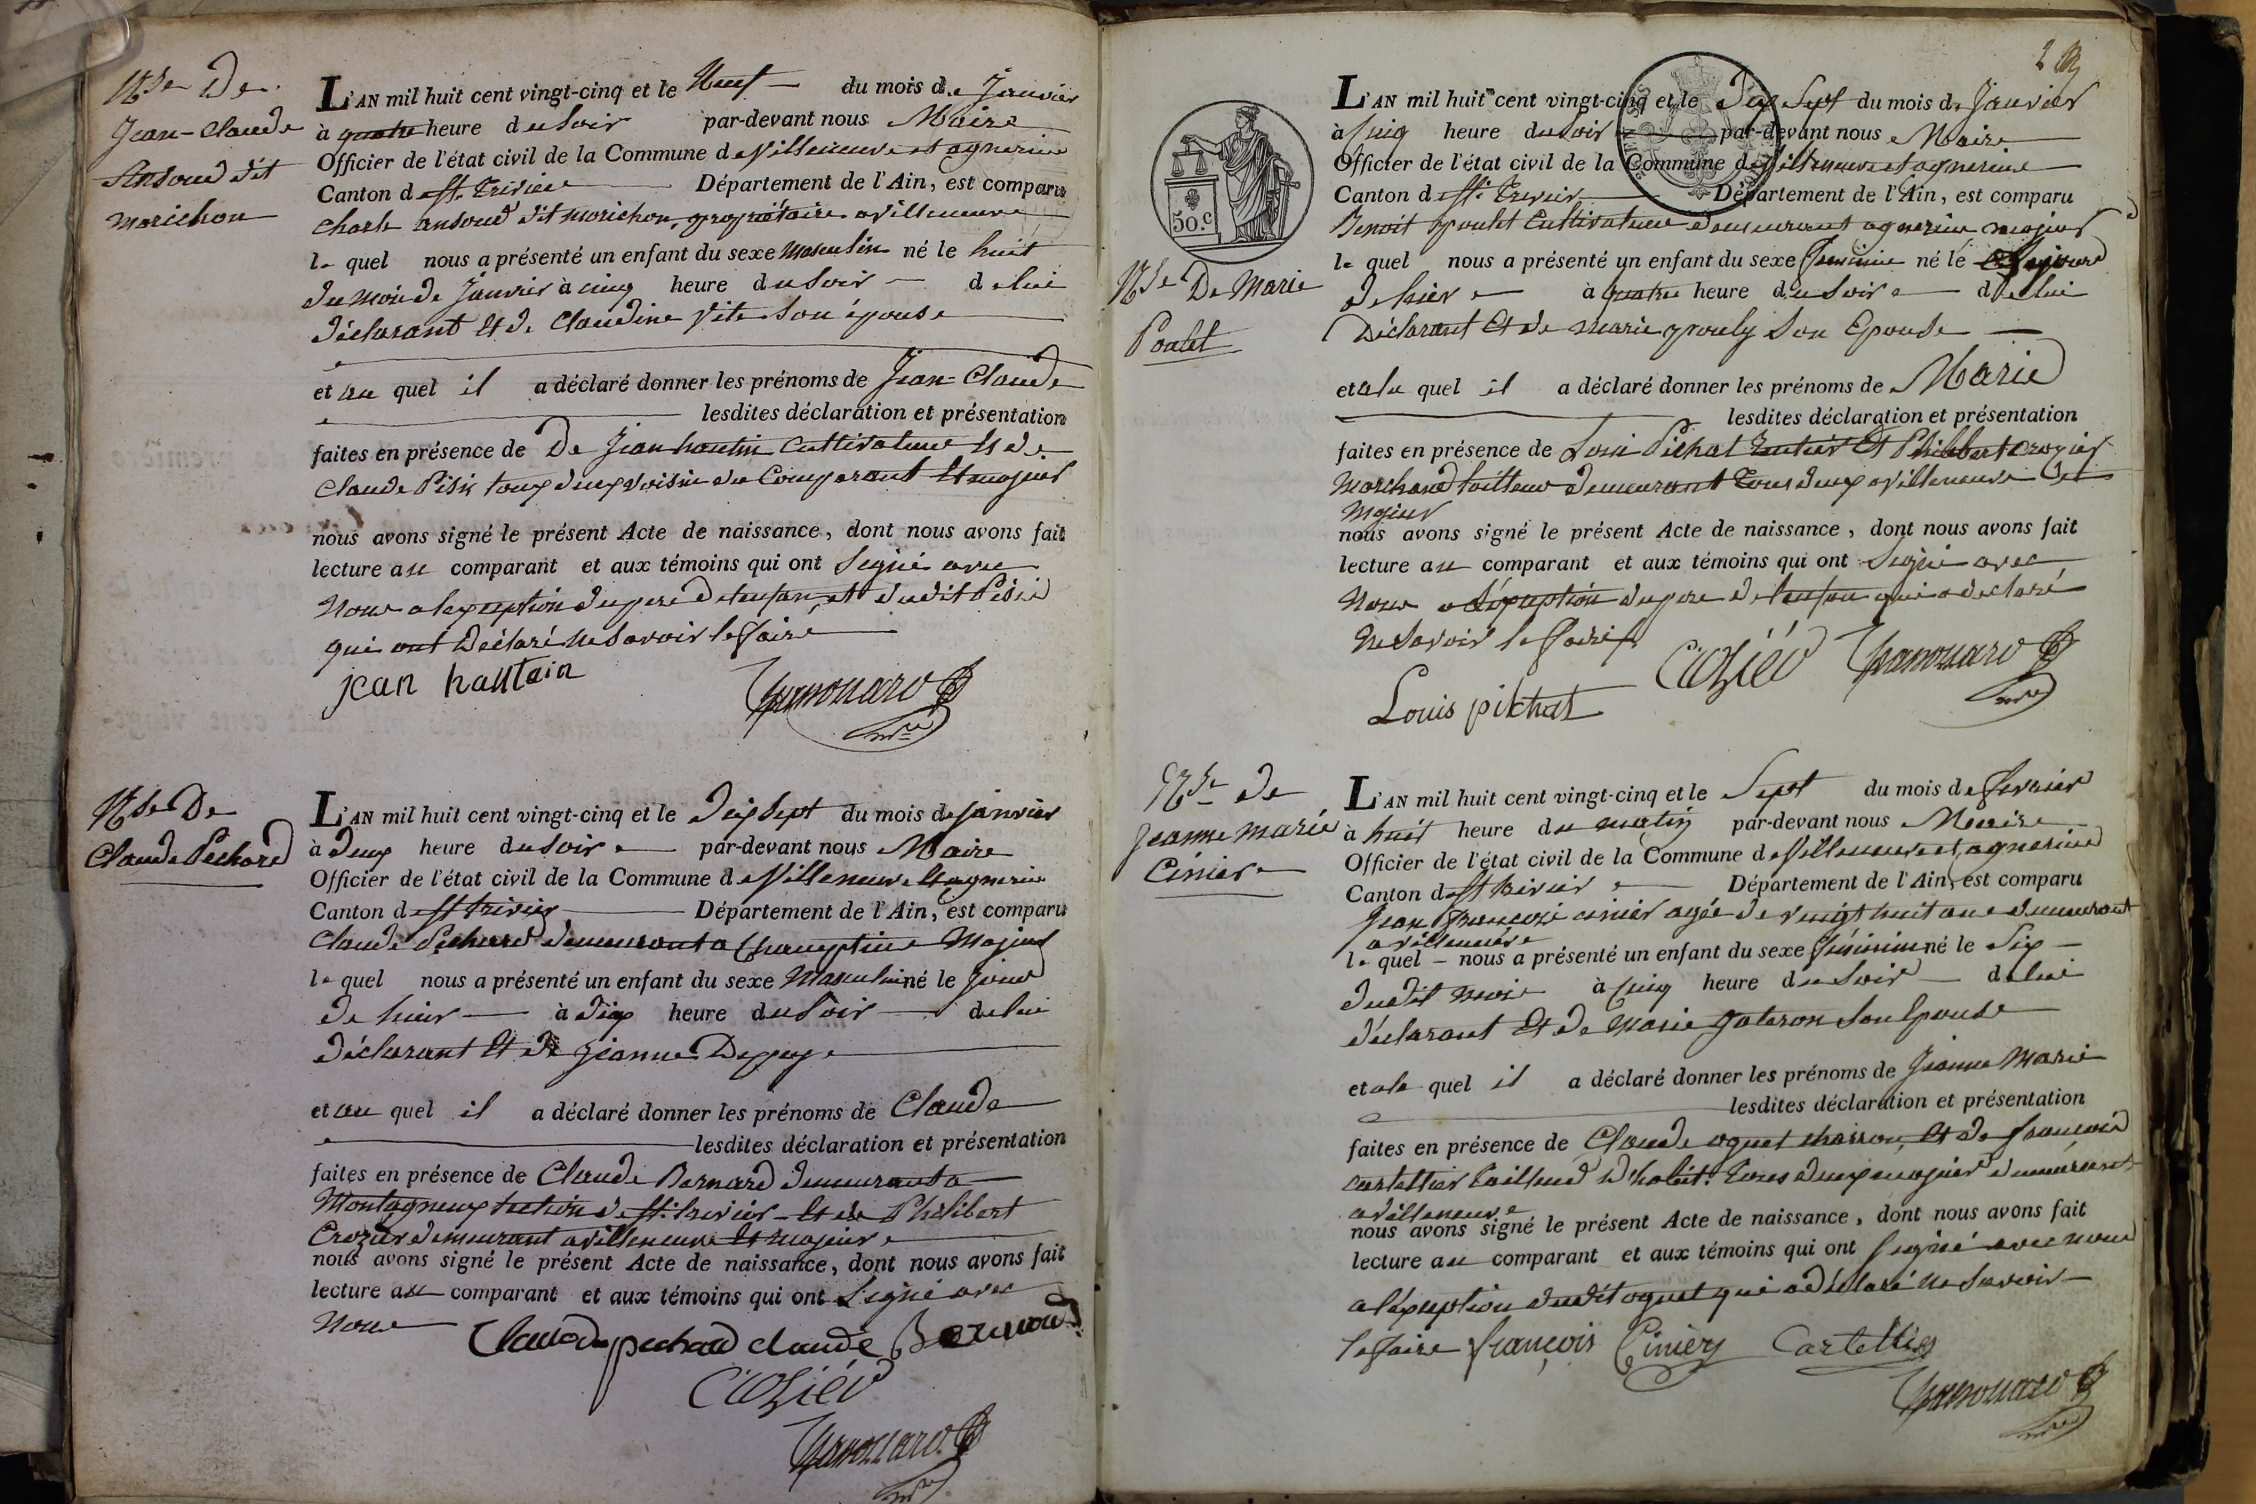 Nse De
Jean-Claude
Ansoud dit
Morichon
L'AN mil huit cent vingt-cinq et le Neuf du mois de Janvier
à quatre heure du Soir par-devant nous Maire
Officier de l'état civil de la Commune de Villeneuve et agnerins
Canton de St. Trivier Département de l'Ain, est comparu
Charle ansoud dit Morichon, propriétaire a villeneuve
le quel nous a présenté un enfant du sexe Masculin né le huit
du mois de Janvier à cinq heure du Soir de lui
déclarant Et de Claudine Son épouse
et au quel il a déclaré donner les prénoms de Jean-Claude
lesdites déclaration et présentation
faites en présence de De Jean hautin Cultivateur Et de
Claude Pisis tous deux voisin du Comparant Et majeur
nous avons signé le présent Acte de naissance, dont nous avons fait
lecture au comparant et aux témoins qui ont Signé avec
Nous a lexeption du pere de lenfan et dudit Pisis
qui ont Déclaré ne Savoir le faire
jean hautain
Nse De
Claude Pechard
L'AN mil huit cent vingt-cinq et le Dix Sept du mois de janvier
à Deux heure du Soir par-devant nous Maire
Officier de l'état civil de la Commune de Villeneuve Et agnerins
Canton de St trivier Département de l'Ain, est comparu
Claude Pechard demeurant a Chaneptine Majeur
le quel nous a présenté un enfant du sexe Masculin né le jour
de hier à dix heure du Soir de lui
déclarant Et de Jeanne
et au quel il a déclaré donner les prénoms de Claude
lesdites déclaration et présentation
faites en présence de Claude Bernard demeurant a
Montagneux Section de St. trivier Et de Philibert
Crozier demeurant a villeneuve Et majeur
nous avons signé le présent Acte de naissance, dont nous avons fait
lecture au comparant et aux témoins qui ont Signé avec
Nous
Claude pechard claude Bernard
Croziér
2
50.c
Nse De Marie
Poulet
L'AN mil huit cent vingt-cinq et le Dix Sept du mois de Janvier
à cinq heure du Soir par-devant nous Maire
Officier de l'état civil de la Commune de Villeneuve et agnerins
Canton de St. Trivier Département de l'Ain, est comparu
Benoit poulet Cultivateur demeurant agnerins majeur
le quel nous a présenté un enfant du sexe Feminin né le jour
de hier à quatre heure du Soir de lui
Déclarant Et de Marie Son Epouse
et a la quel il a déclaré donner les prénoms de Marie
lesdites déclaration et présentation
faites en présence de Louis Pichat Rentier Et Philibert Crozier
Marchand tailleur demeurant Tous deux a villeneuve Et
Majeur
nous avons signé le présent Acte de naissance, dont nous avons fait
lecture au comparant et aux témoins qui ont Signé avec
Nous a Lexeption du pere de lenfan qui a declaré
ne Savoir le faire
Croziér
Louis pichat
Nse de
Jeanne Marie
Cinier
L'AN mil huit cent vingt-cinq et le Sept du mois de fevrier
à huit heure du matin par-devant nous Maire
Officier de l'état civil de la Commune de Villeneuve et agnerins
Canton de St trivier Département de l'Ain, est comparu
Jean François cinier agée de vingt huit ans demeurant
a villeneuve
le quel nous a présenté un enfant du sexe féminin né le Six
dudit mois à cinq heure du Soir de lui
déclarant Et de Marie gateron Son Epouse
et a la quel il a déclaré donner les prénoms de Jeanne Marie
lesdites déclaration et présentation
faites en présence de Claude oguet charron, Et de françois
cartellier tailleur d'habit. Tous deux majeur demeurant
a villeneuve
nous avons signé le présent Acte de naissance, dont nous avons fait
lecture au comparant et aux témoins qui ont Signé avec nous
a léxeption dudit oguet qui a déclaré ne Savoir
le faire françois Ciniér Cartellier